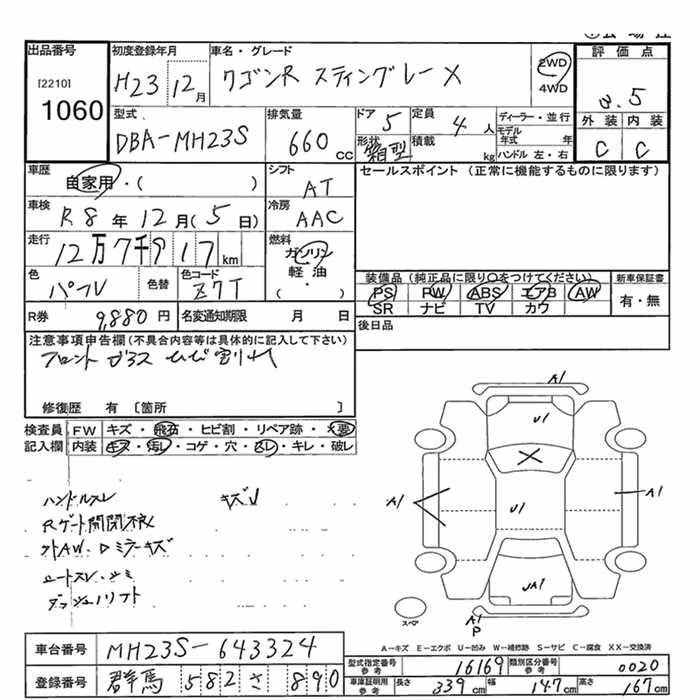 出品番号 初度登録年月 車名・グレード 評価点
[2210]
1060
H23 12月 ワゴンR スティングレー X 2WD 4WD 3.5
型式 排気量 ドア 定員 ディーラー・並行 外装 内装
DBA-MH23S 660cc 5 4人 モデル年式 年 C C
形状 箱型 積載 kg ハンドル 左・右
車歴 シフト セールスポイント (正常に機能するものに限ります)
自家用・( ) AT
車検 冷房
R8年12月(5日) AAC
走行 燃料
12万7千917km ガソリン
軽油
( ・ )
色 色替 色コード 装備品 (純正品に限り○をつけてください) 新車保証書
パール Z7T PS PW ABS エアB AW 有・無
SR ナビ TV カワ
R券 9,880円 名変通知期限 月 日 後日品
注意事項申告欄(不具合内容等は具体的に記入して下さい)
フロント ガラス ヒビ割れ
修復歴 有 〔箇所 〕
検査員 FW キズ・飛石・ヒビ割・リペア跡・×要
記入欄 内装 キズ・汚レ・コゲ・穴・スレ・キレ・破レ
ハンドルスレ キズU
Rゲート開閉不良
外AW・ドミラーキズ
シートスレ・シミ
ダッシュリフト
A1
U1
A1 A1
U1
UA1
A1
P
スペア
A-キズ E-エクボ U-凹み W-補修跡 S-サビ C-腐食 XX-交換済
車台番号 MH23S-643324
型式指定番号 参考 16169 類別区分番号 参考 0020
登録番号 群馬 582 さ 890
車庫証明用 参考 長さ 339cm 幅 147cm 高さ 167cm